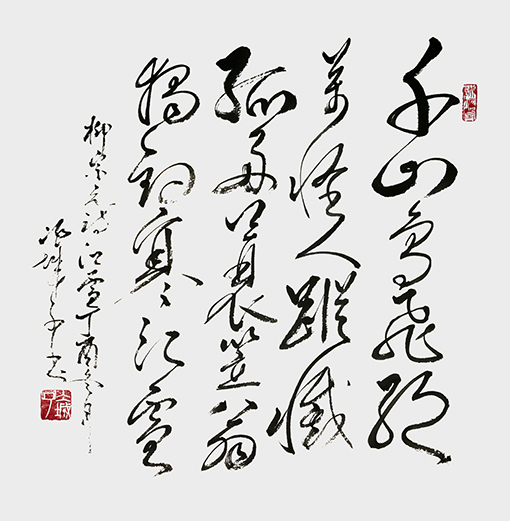 千山鳥飛絕
萬徑人蹤滅
孤舟蓑笠翁
獨釣寒江雪
柳宗元詩江雪丁酉冬月
书